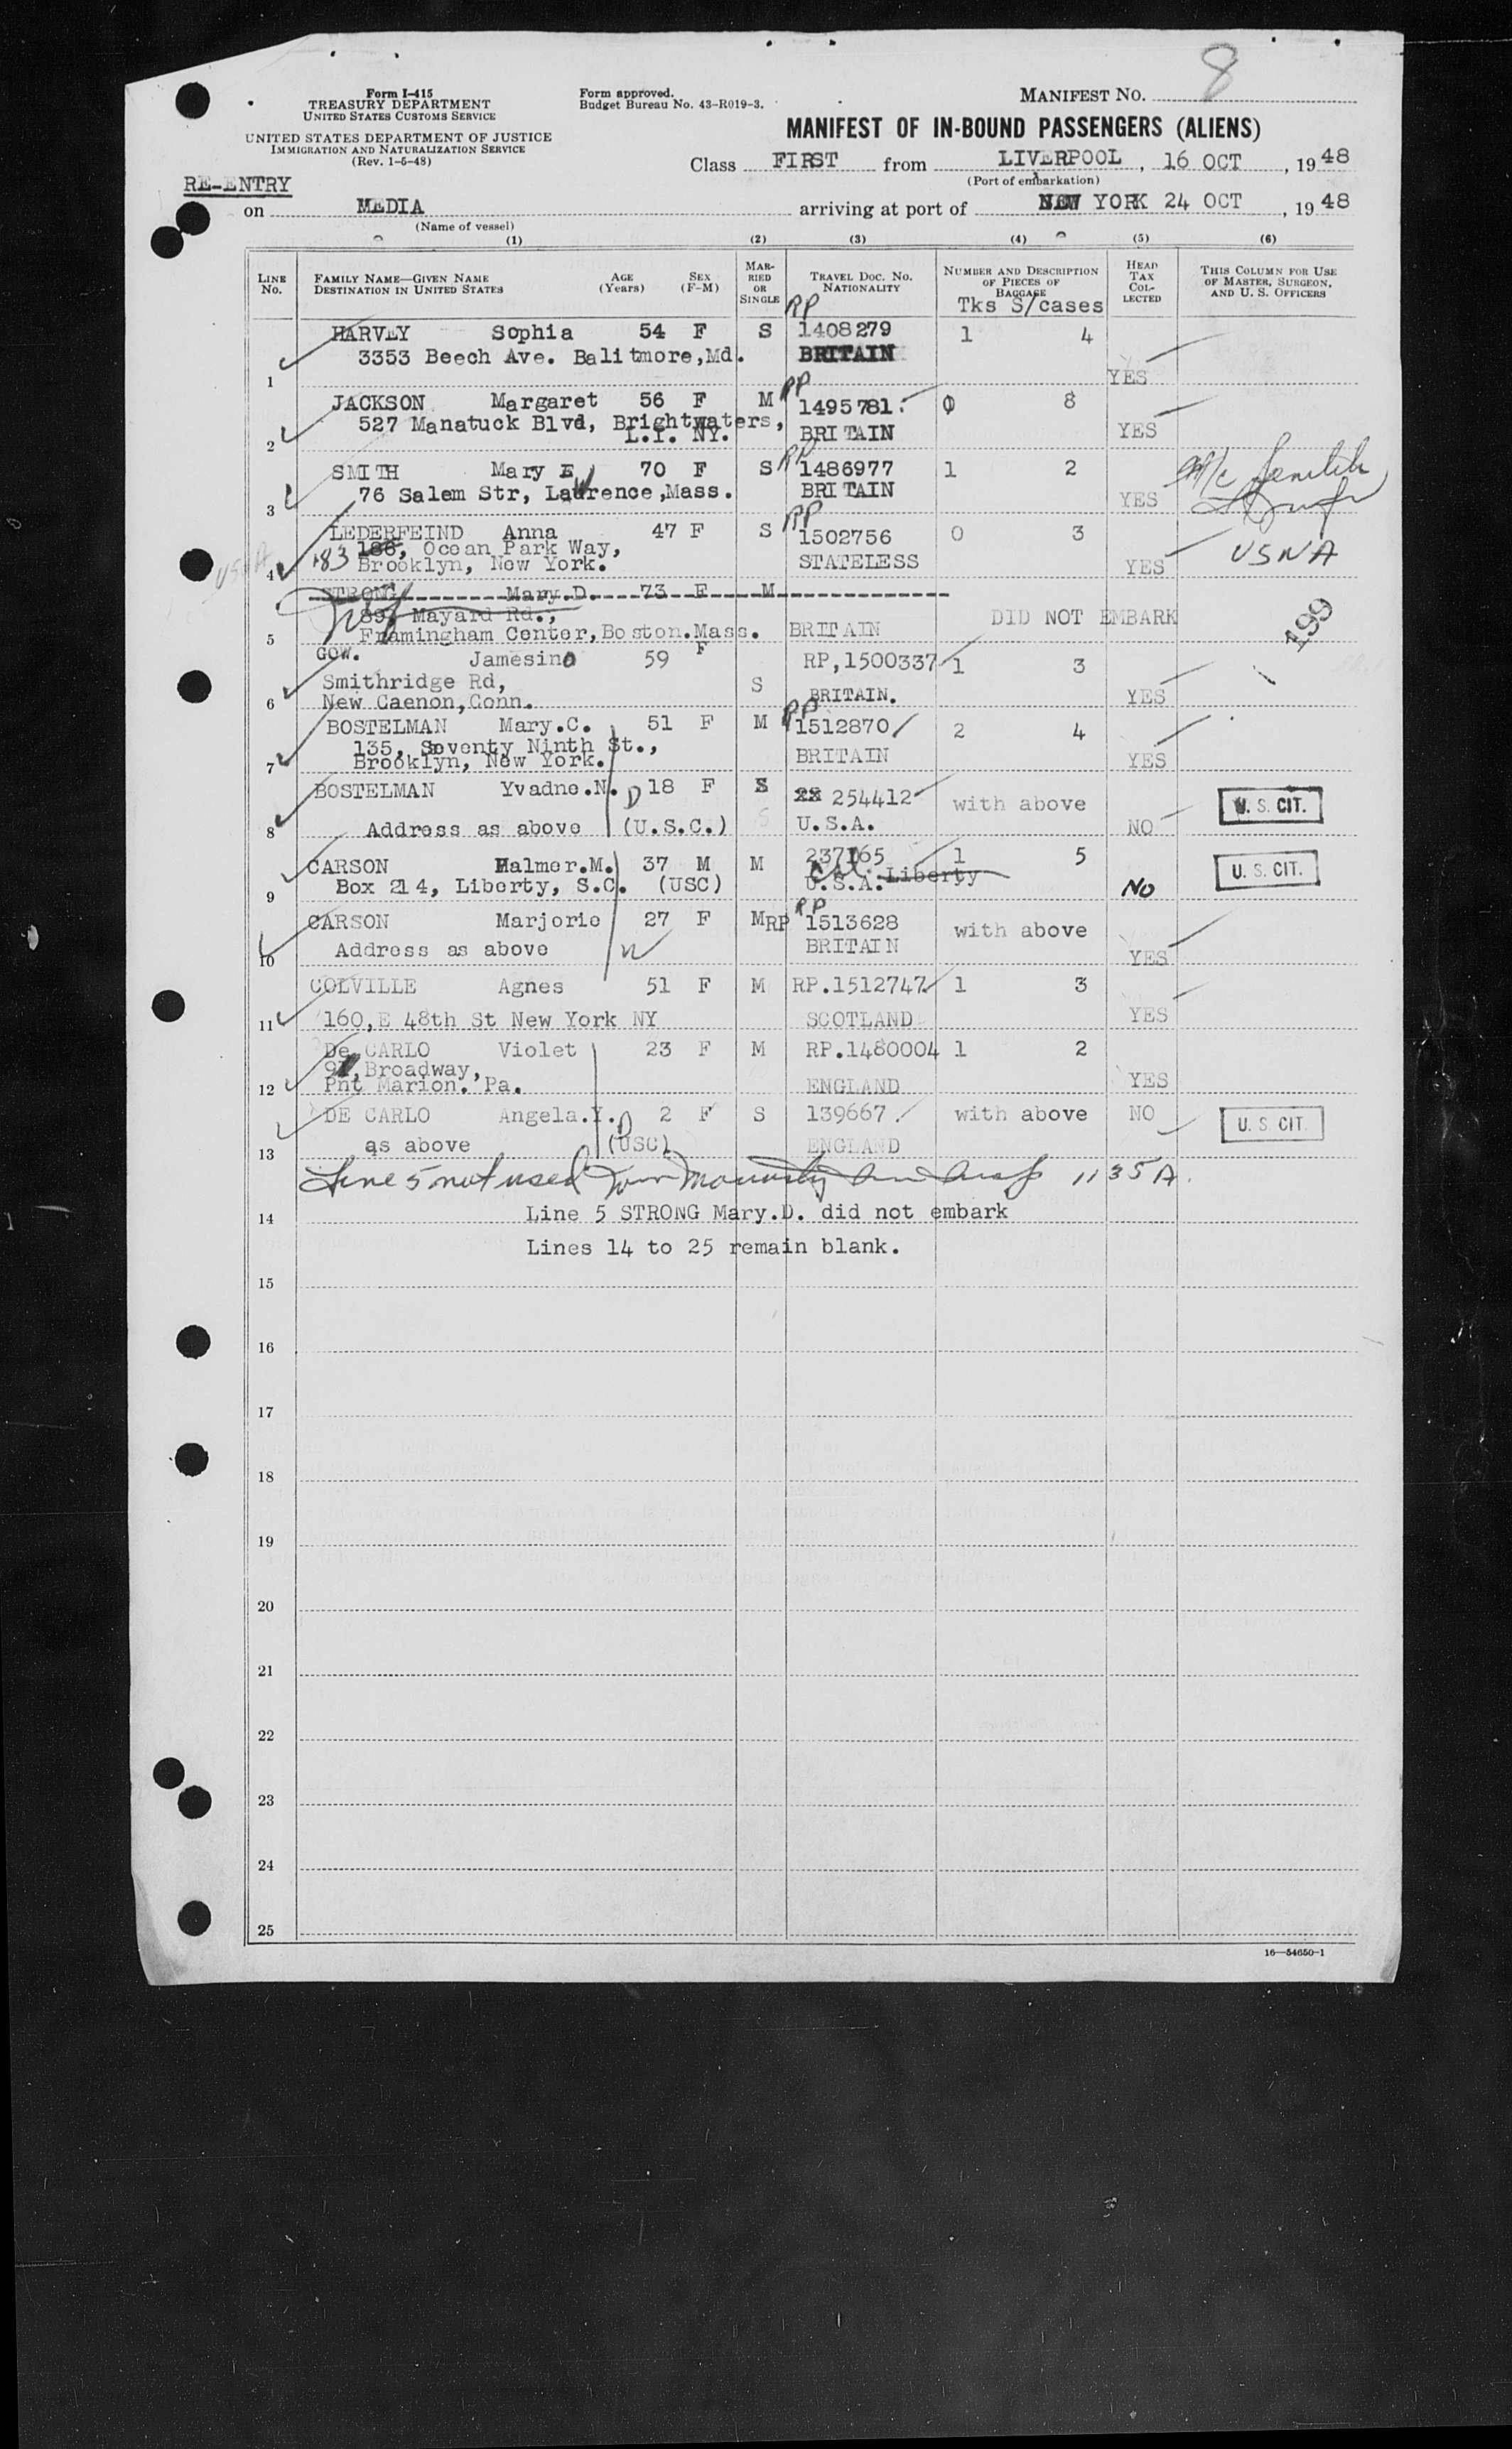 8
Form I-415
TREASURY DEPARTMENT
UNITED STATES CUSTOMS SERVICE
UNITED STATES DEPARTMENT OF JUSTICE
IMMIGRATION AND NATURALIZATION SERVICE
(Rev. 1-6-48)
Form approved.
Budget Bureau No. 43-R019-3.
MANIFEST NO.
MANIFEST OF IN-BOUND PASSENGERS (ALIENS)
Class FIRST from LIVERPOOL, 16 OCT, 1948
(Port of embarkation)
RE-ENTRY
on MEDIA arriving at port of NEW YORK 24 OCT, 1948
(Name of vessel)
(1) (2) (3) (4) (5) (6)
LINE No. FAMILY NAME—GIVEN NAME DESTINATION IN UNITED STATES AGE (Years) SEX (F-M) MARRIED OR SINGLE TRAVEL DOC. No. NATIONALITY NUMBER AND DESCRIPTION OF PIECES OF BAGGAGE HEAD TAX COLLECTED THIS COLUMN FOR USE OF MASTER, SURGEON, AND U. S. OFFICERS
Tks S/cases
HARVEY Sophia 54 F S RP 1408279 1 4
1 3353 Beech Ave. Balitmore,Md. BRITAIN YES
JACKSON Margaret 56 F M RP 1495781. 0 8
527 Manatuck Blvd, Brightwaters, BRITAIN YES
2 L.I. NY.
SMITH Mary E W 70 F S RP 1486977 1 2
3 76 Salem Str, Lawrence,Mass. BRITAIN YES
LEDERFEIND Anna 47 F S RP 1502756 0 3
183 186, Ocean Park Way, STATELESS YES USNA
4 Brooklyn, New York.
STRONG Mary.D. 73 F M
89, Mayard Rd., DID NOT EMBARK
5 Framingham Center,Boston.Mass. BRITAIN 199
GOW. Jamesina 59 F RP,1500337 1 3
Smithridge Rd, S
6 New Caenon,Conn. BRITAIN. YES
BOSTELMAN Mary.C. 51 F M RP 1512870 2 4
135, Seventy Ninth St., BRITAIN YES
7 Brooklyn, New York.
BOSTELMAN Yvadne.N. D 18 F S 254412 with above U. S. CIT.
8 Address as above (U.S.C.) U.S.A. NO
CARSON Halmer.M. 37 M M 237165 1 5 U. S. CIT.
9 Box 214, Liberty, S.C. (USC) U.S.A. Liberty No
CARSON Marjorie 27 F M RP RP 1513628 with above
10 Address as above BRITAIN YES
COLVILLE Agnes 51 F M RP.1512747 1 3
11 160,E 48th St New York NY SCOTLAND YES
De CARLO Violet 23 F M RP.1480004 1 2
Broadway,
12 Pnt Marion. Pa. ENGLAND YES
DE CARLO Angela.Y. D 2 F S 139667 with above NO U. S. CIT.
13 as above (USC) ENGLAND
Line 5 not used 1135A.
14 Line 5 STRONG Mary.D. did not embark
Lines 14 to 25 remain blank.
15
16
17
18
19
20
21
22
23
24
25
16—54650-1